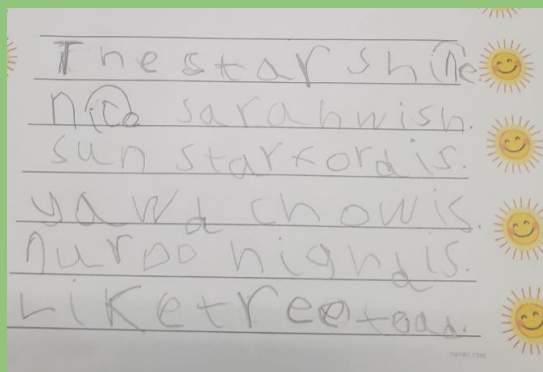 The star shine
nico sarah wish.
sun star ford is.
yawd chow is.
nurdo high d is.
Like tree toad.